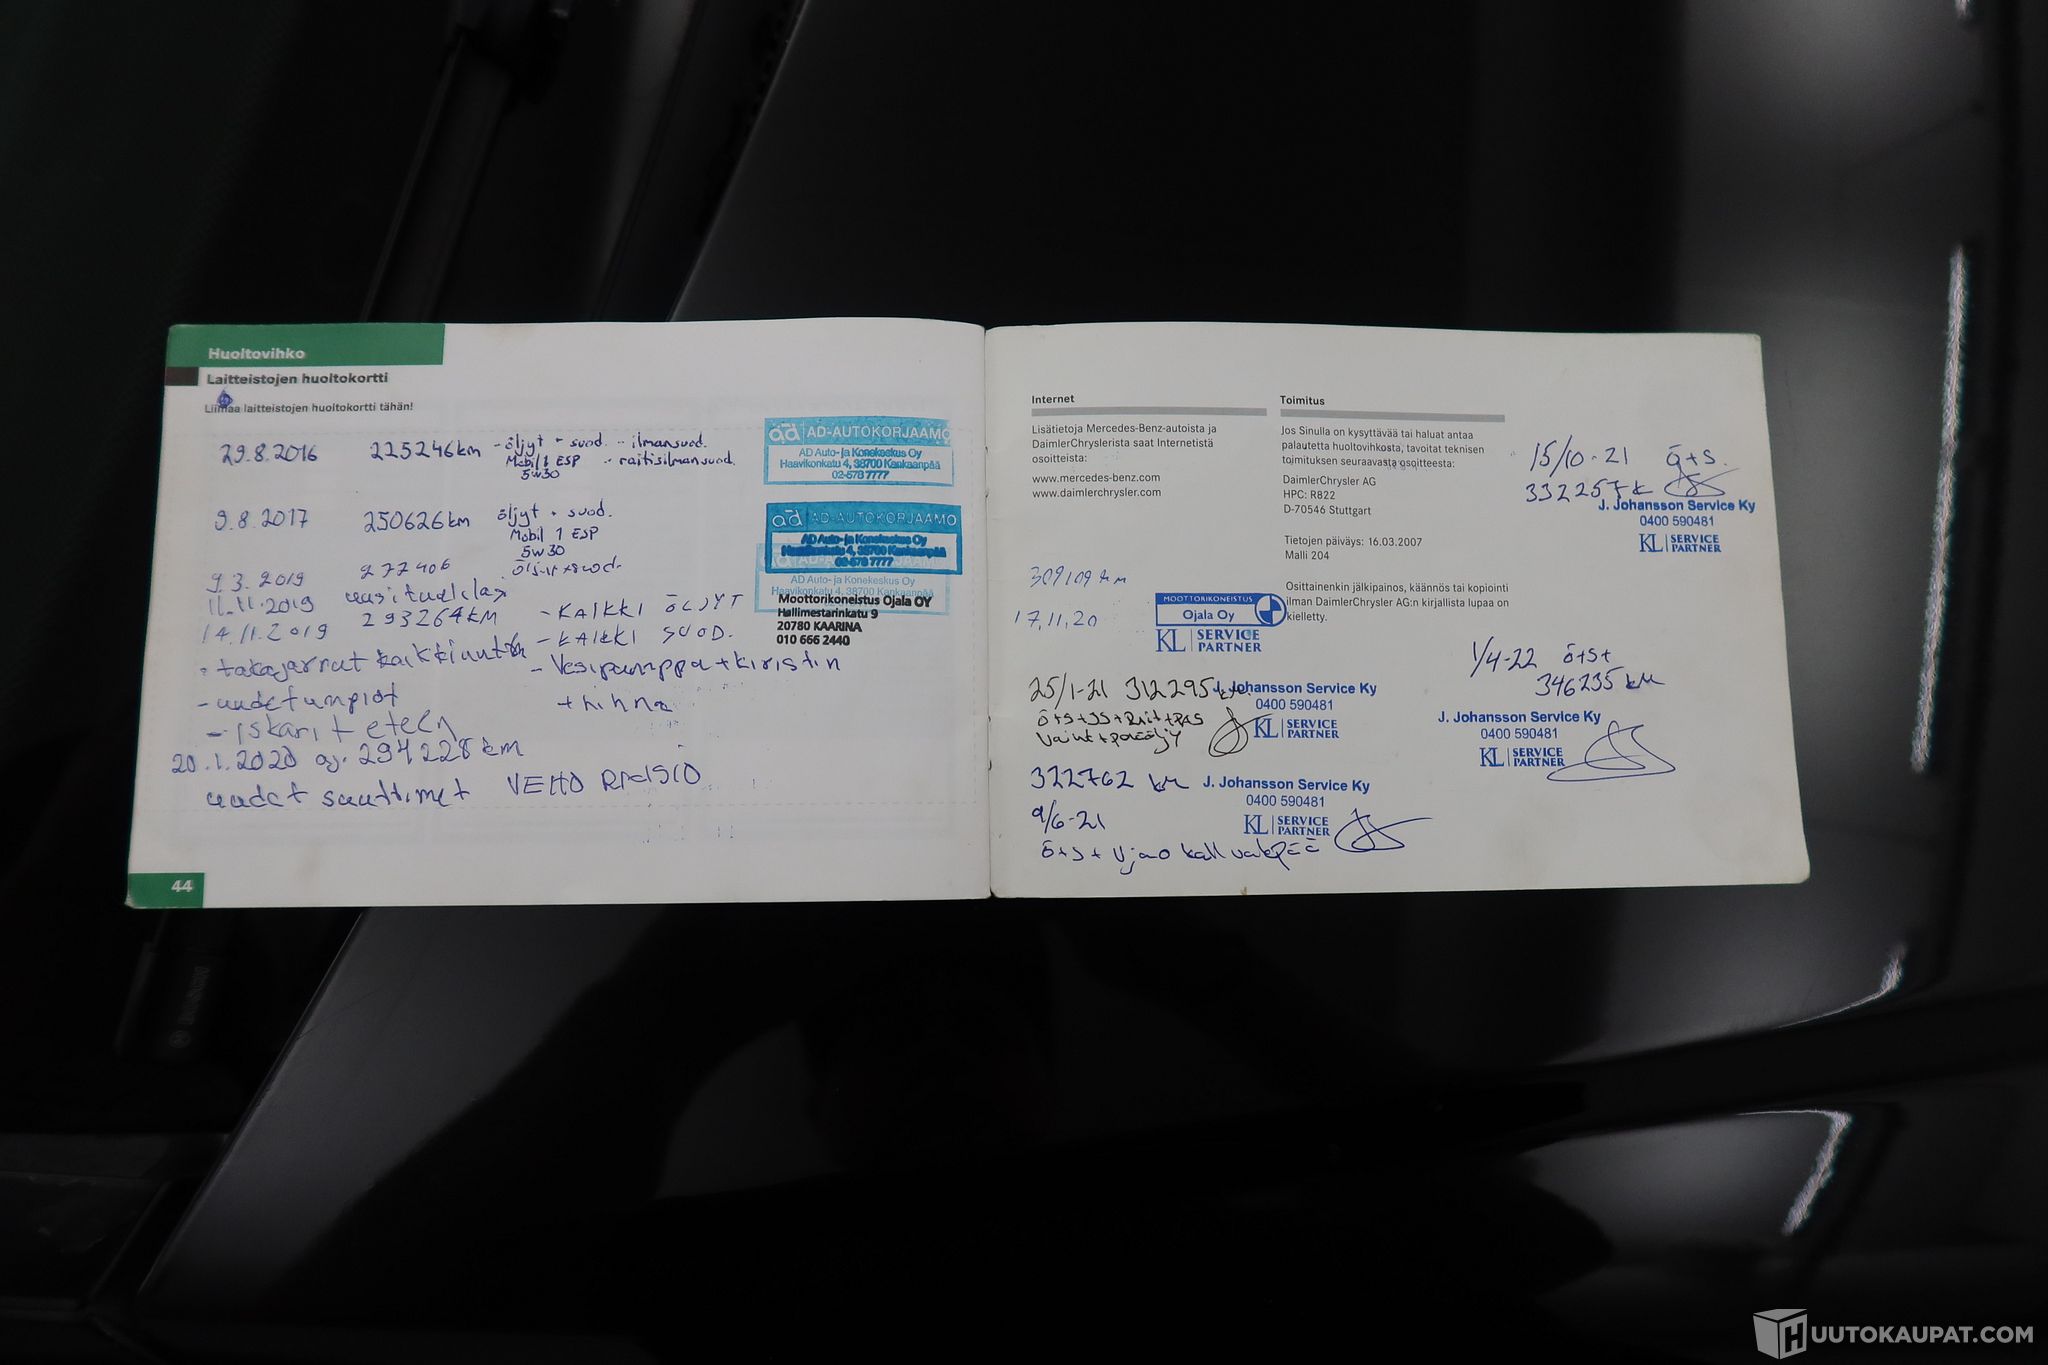 Huoltovihko
Laitteistojen huoltokortti
Liimaa laitteistojen huoltokortti tähän!
29.8.2016 225246km - öljyt + suod. - ilmansuod.
Mobil 1 ESP - raitisilmansuod.
5w30
ad AD-AUTOKORJAAMO
AD Auto- ja Konekeskus Oy
Haavikonkatu 4, 38700 Kankaanpää
02-578 7777
9.8.2017 250626km öljyt + suod.
Mobil 1 ESP
5w30
ad AD-AUTOKORJAAMO
AD Auto- ja Konekeskus Oy
Haavikonkatu 4, 38700 Kankaanpää
02-578 7777
AD Auto- ja Konekeskus Oy
9.3.2019 277406 öljyt + suod.
11.11.2019 uusi tuulilasi
14.11.2019 293264KM - KAIKKI ÖLJYT
Moottorikoneistus Ojala OY
Hallimestarinkatu 9
20780 KAARINA
010 666 2440
- takajarrut kaikki uutta - KAIKKI SUOD.
- uudet umpiot - Vesipumppu + kiristin
+ hihna
- iskarit eteen
20.1.2020 aj. 294228km
uudet suuttimet VEHO RAISIO
44
Internet
Lisätietoja Mercedes-Benz-autoista ja
DaimlerChryslerista saat Internetistä
osoitteista:
www.mercedes-benz.com
www.daimlerchrysler.com
Toimitus
Jos Sinulla on kysyttävää tai haluat antaa
palautetta huoltovihkosta, tavoitat teknisen
toimituksen seuraavasta osoitteesta:
DaimlerChrysler AG
HPC: R822
D-70546 Stuttgart
Tietojen päiväys: 16.03.2007
Malli 204
Osittainenkin jälkipainos, käännös tai kopiointi
ilman DaimlerChrysler AG:n kirjallista lupaa on
kielletty.
309109 km
17.11.20
MOOTTORIKONEISTUS
Ojala Oy
KL SERVICE
PARTNER
25/1-21 312295 km
J. Johansson Service Ky
0400 590481
KL SERVICE
PARTNER
Ö+S+IS+Rait+PAS
322762 km
J. Johansson Service Ky
0400 590481
KL SERVICE
PARTNER
9/6-21
Ö+S+
15/10-21 Ö+S.
332257k
J. Johansson Service Ky
0400 590481
KL SERVICE
PARTNER
1/4-22 Ö+S+
346235 km
J. Johansson Service Ky
0400 590481
KL SERVICE
PARTNER
HUUTOKAUPAT.COM